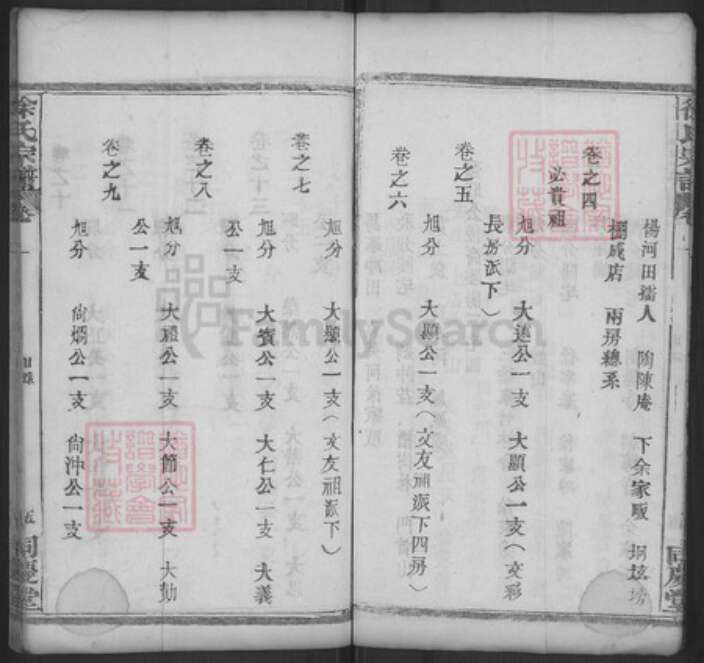 楊河田擂人　陶陳庵　下余家畈　坊
棚咸店　兩房總系
卷之四
必貴祖
旭分　大進公一支　大顯公一支（文彩
長房派下）
卷之五
旭分　大顯公一支（文友祖派下四房）
卷之六
旭分　大顯公一支（文友祖派下）
卷之七
旭分　大賓公一支　大仁公一支　大義
公一支
卷之八
旭分　大禮公一支　大節公一支　大勛
公一支
卷之九
旭分　尙炯公一支　尙沖公一支
徐氏宗譜
卷一
五
同慶堂
FamilySearch